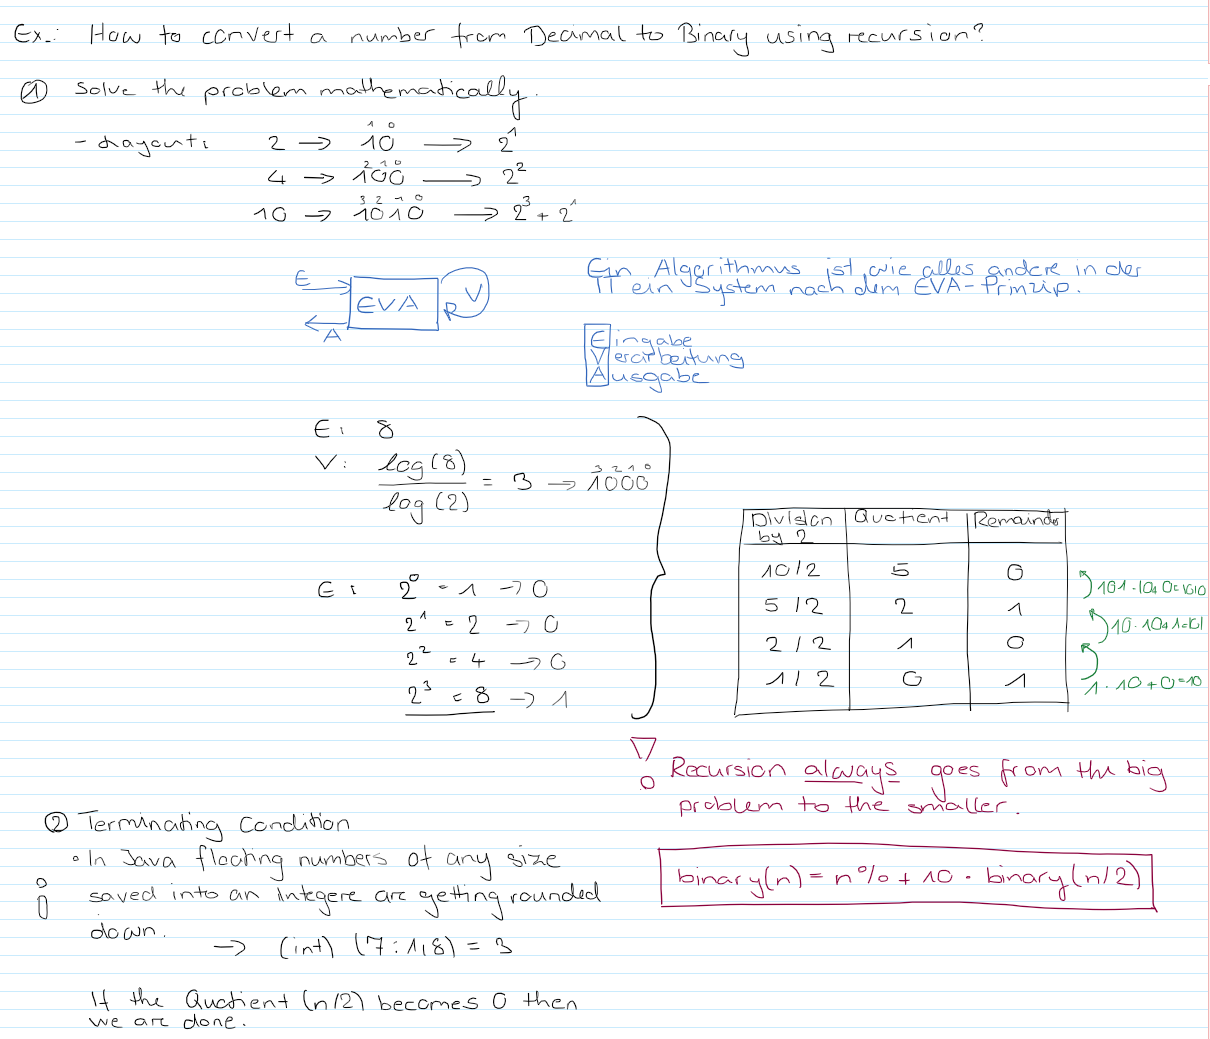 Ex.: How to convert a number from Decimal to Binary using recursion?
① Solve the problem mathematically.
2 → 10 → 2¹
1 0
4 → 100 → 2²
2 1 0
10 → 1010 → 2³ + 2¹
3 2 1 0
E
EVA
V
R
A
Ein Algorithmus ist, wie alles andere in der
IT ein System nach dem EVA-Prinzip.
Eingabe
Verarbeitung
Ausgabe
E: 8
V: log(8) / log(2) = 3 → 1000
3 2 1 0
E: 2⁰ = 1 → 0
2¹ = 2 → 0
2² = 4 → 0
2³ = 8 → 1
Division by 2 | Quotient | Remainder
10/2 5 0
5/2 2 1
2/2 1 0
1/2 0 1
101·10+0=1010
10·10+1=101
1·10+0=10
Recursion always goes from the big
problem to the smaller.
binary(n) = n% + 10 · binary(n/2)
② Terminating Condition
• In Java floating numbers of any size
saved into an Integere are getting rounded
down.
→ (int) (7:1,8) = 3
If the Quotient (n/2) becomes 0 then
we are done.